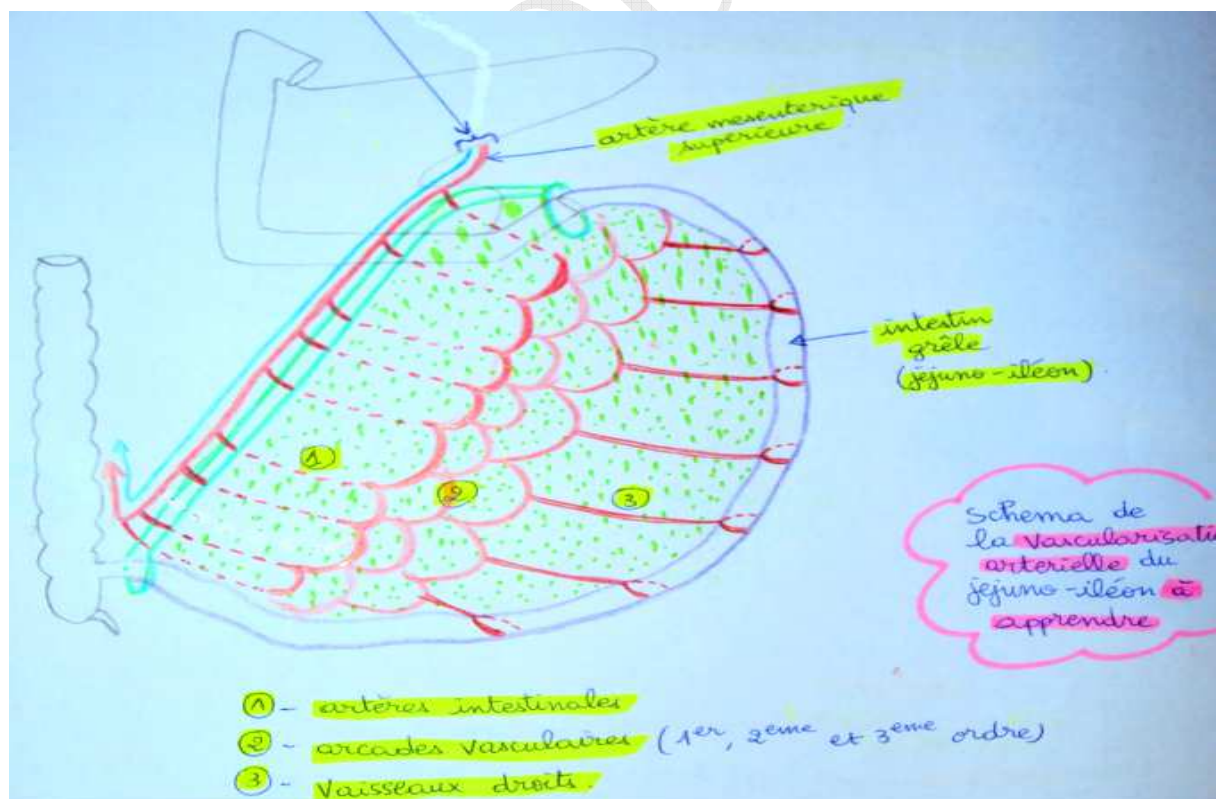 artère mesenterique
supérieure
intestin
grêle
(jéjuno-iléon)
1
2
3
Schema de
la Vascularisati
arterielle du
jejuno-iléon à
apprendre
1 - artères intestinales
2 - arcades vasculaires (1er, 2eme et 3eme ordre)
3 - Vaisseaux droits.